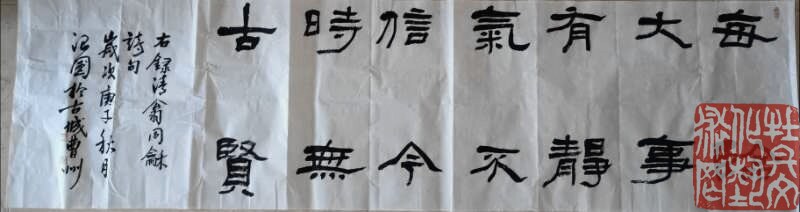 每
大事
有靜
氣不
信今
時無
古賢
右録清翁同龢
詩句
歲次庚子秋月
國於古城曹州